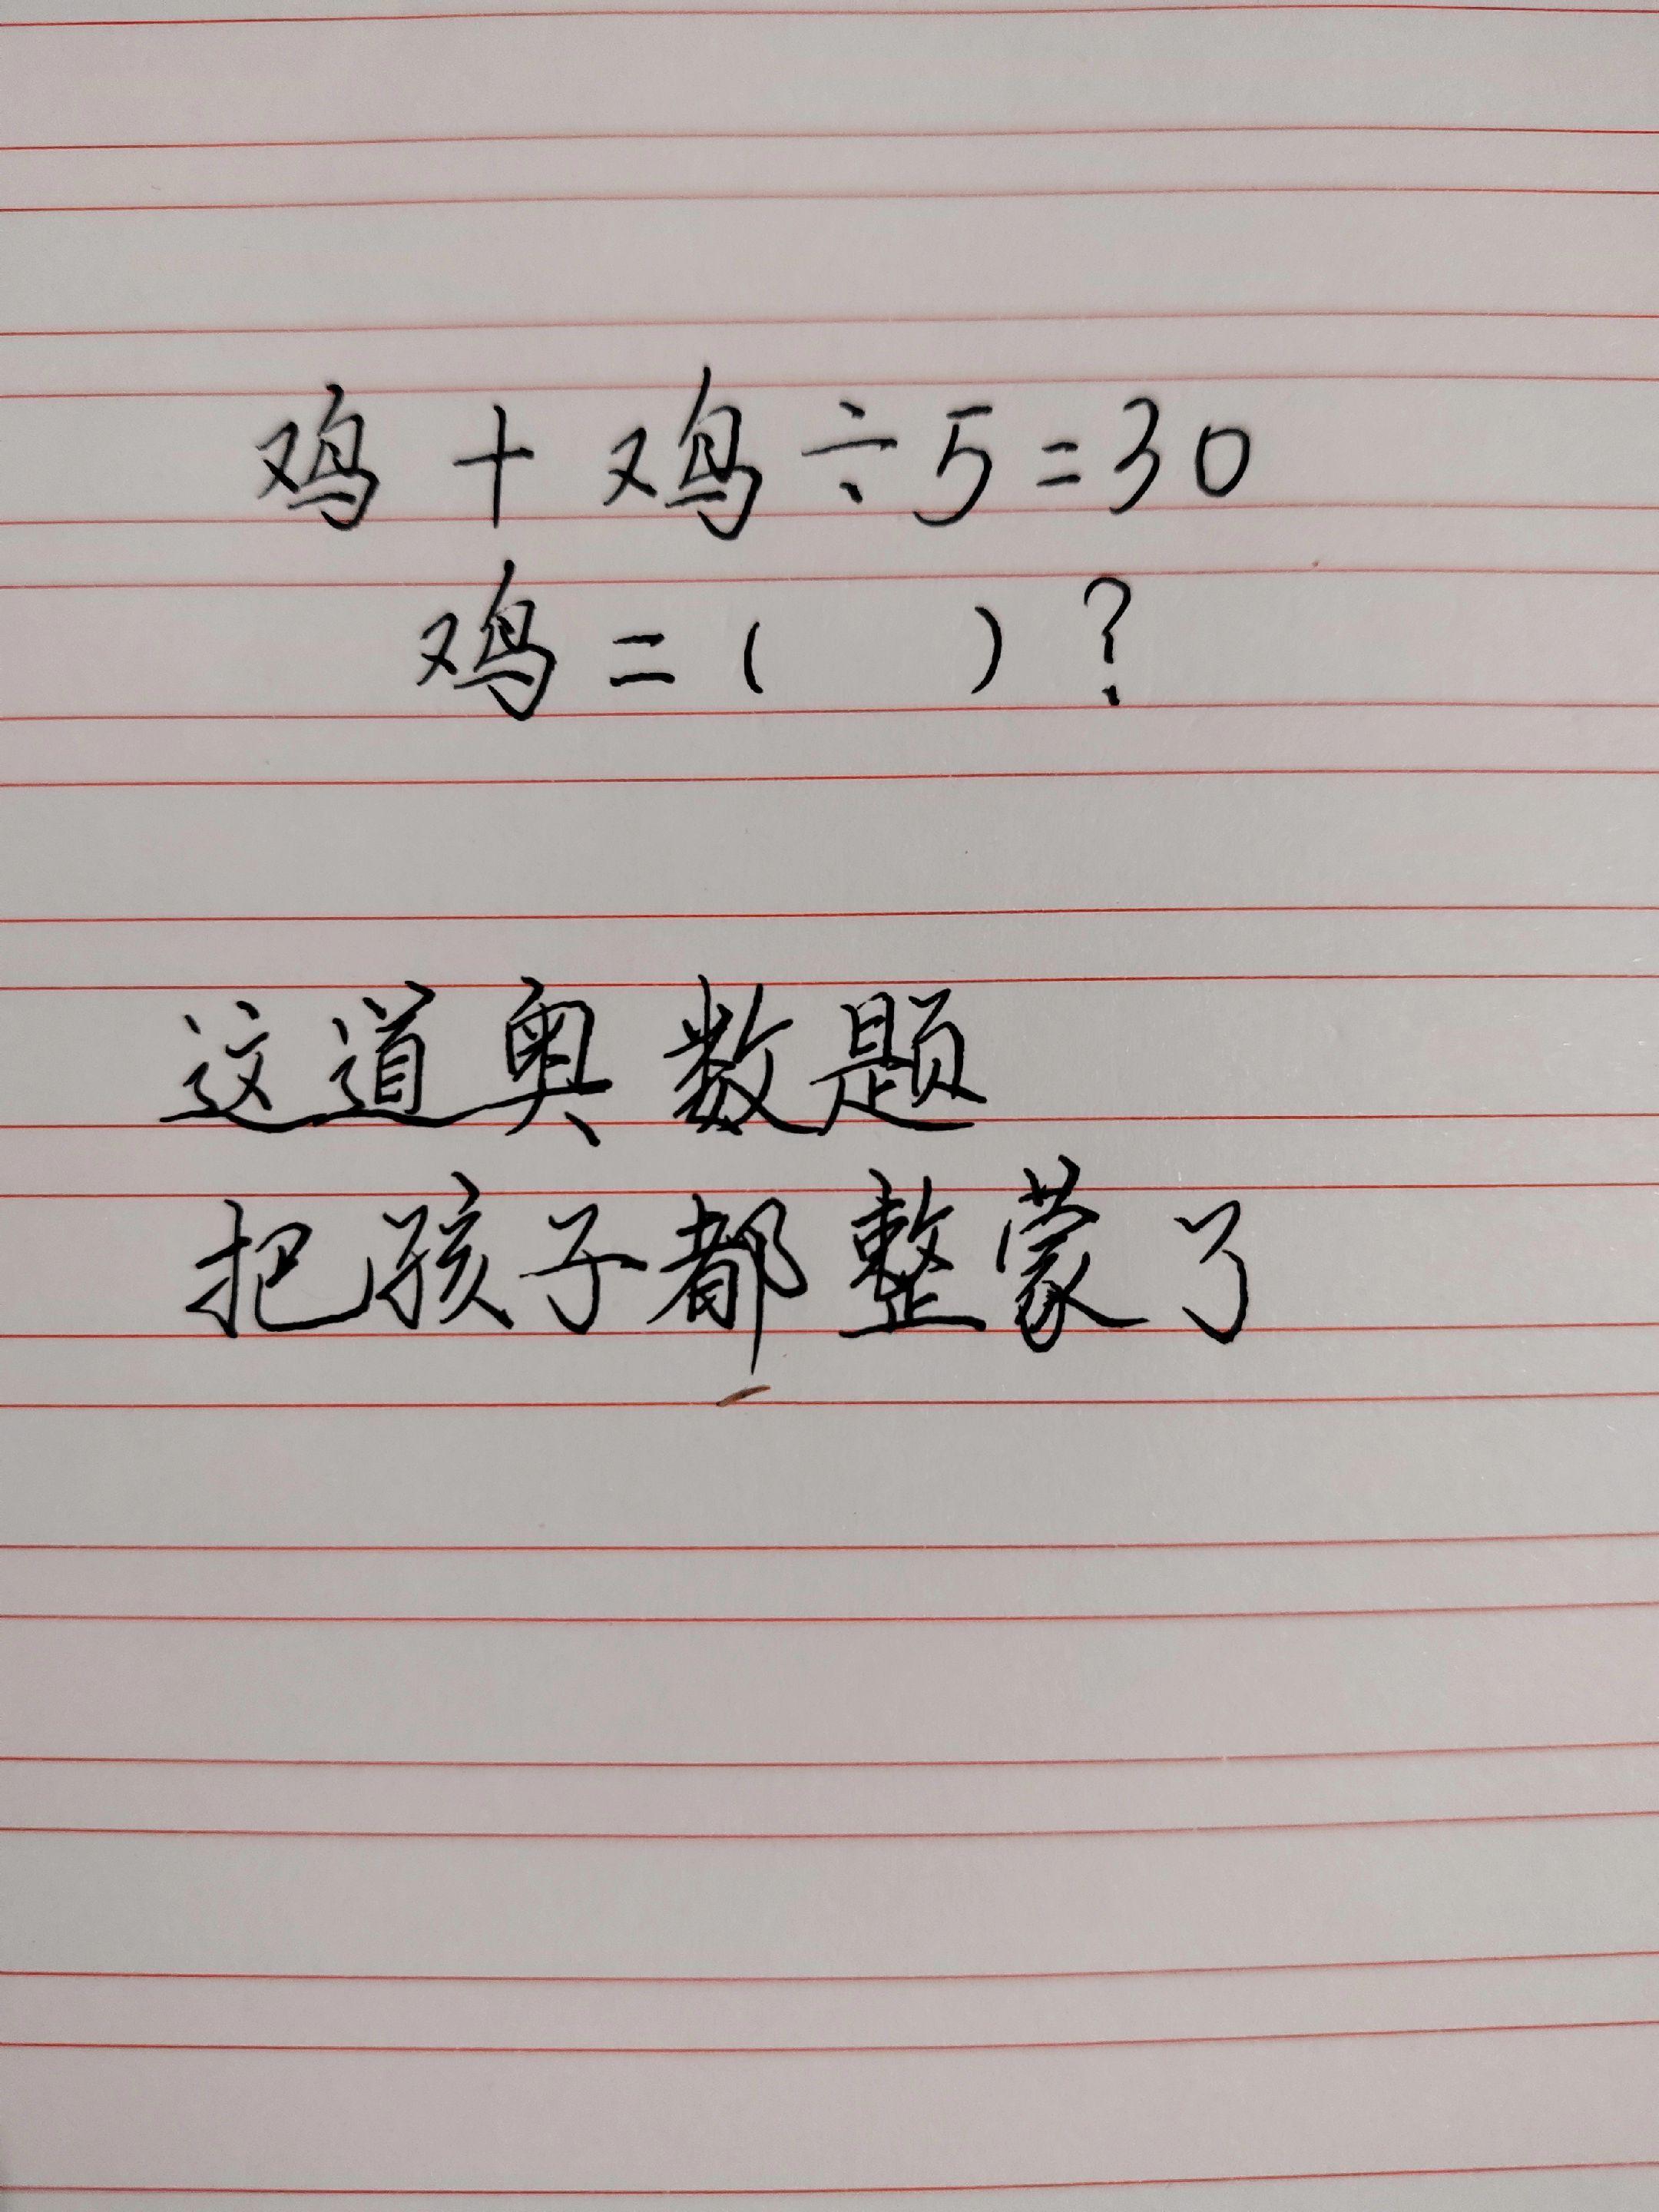 鸡+鸡÷5=30
鸡=( )?
这道奥数题
把孩子都整蒙了